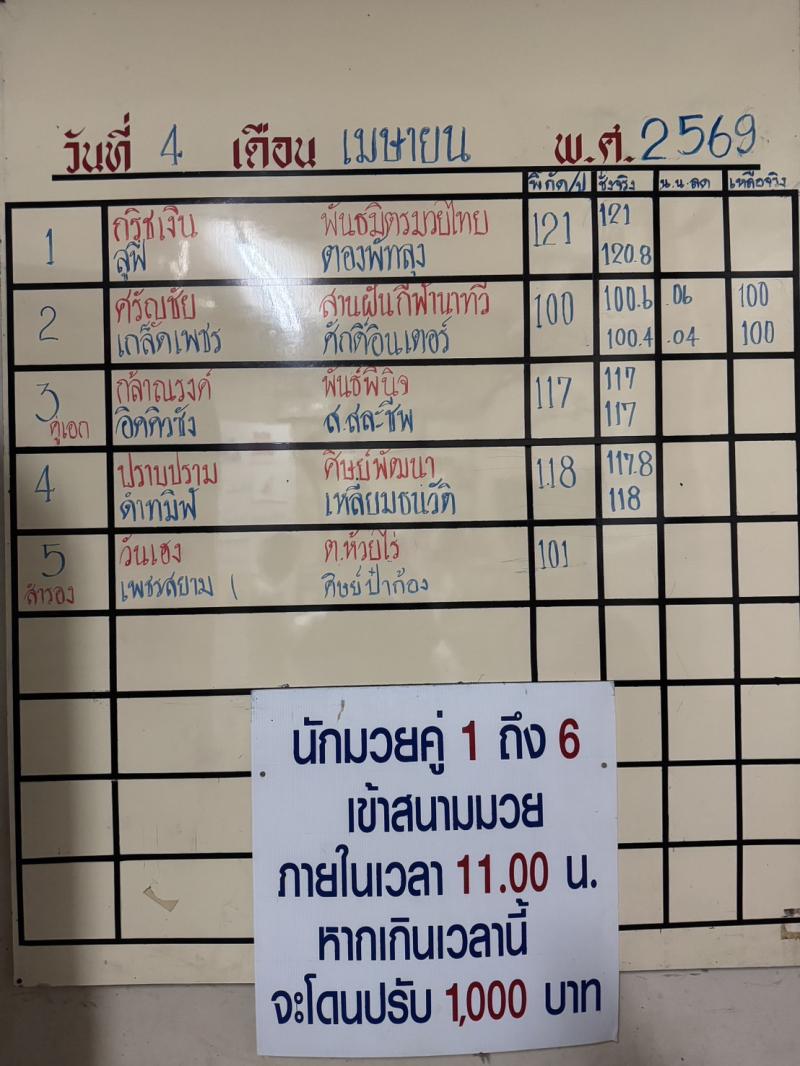 วันที่ 4 เดือน เมษายน พ.ศ. 2569
พิกัด/ป ชั่งจริง น.น.ลด เหลือจริง
1 กริชเงิน พันธมิตรมวยไทย 121 121
สูฟี ตองพัทลุง 120.8
2 ศรัญชัย สานฝันกีฬานาทวี 100 100.6 .06 100
เกล็ดเพชร ศักดิ์อินเตอร์ 100.4 .04 100
3 กล้าณรงค์ พันธ์พินิจ 117 117
คู่เอก อิคคิวซัง ส.สละชีพ 117
4 ปราบปราม ศิษย์พัฒนา 118 117.8
ดำทมิฬ เหลี่ยมธนวัติ 118
5 วันเฮง ต.ห้วยไร่ 101
สำรอง เพชรสยาม ศิษย์ป๋าก้อง
นักมวยคู่ 1 ถึง 6
เข้าสนามมวย
ภายในเวลา 11.00 น.
หากเกินเวลานี้
จะโดนปรับ 1,000 บาท